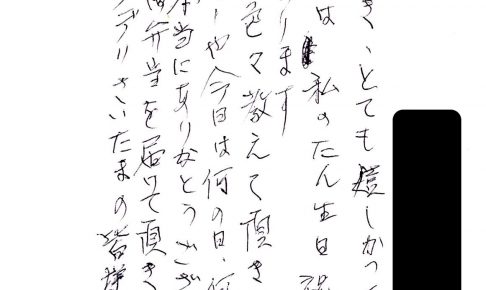 き、とても嬉しかっ
は私のたん生日祝
ります
色々教えて頂き
や今日は何の日、
本当にありがとうござ
弁当を届けて頂き
デリさいたまの皆様